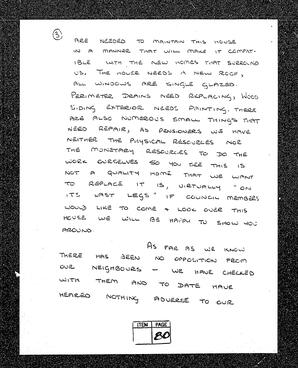 ③
ARE NEEDED TO MAINTAIN THIS HOUSE
IN A MANNER THAT WILL MAKE IT COMPAT-
IBLE WITH THE NEW HOMES THAT SURROUND
US. THE HOUSE NEEDS A NEW ROOF,
ALL WINDOWS ARE SINGLE GLAZED.
PERIMETER DRAINS NEED REPLACING, WOOD
SIDING EXTERIOR NEEDS PAINTING. THERE
ARE ALSO NUMEROUS SMALL THINGS THAT
NEED REPAIR, AS PENSIONERS WE HAVE
NEITHER THE PHYSICAL RESOURCES NOR
THE MONETARY RESOURCES TO DO THE
WORK OURSELVES SO YOU SEE THIS IS
NOT A QUALITY HOME THAT WE WANT
TO REPLACE IT IS, VIRTUALLY "ON
ITS LAST LEGS" IF COUNCIL MEMBERS
WOULD LIKE TO COME & LOOK OVER THIS
HOUSE WE WILL BE HAPPY TO SHOW YOU
AROUND.
AS FAR AS WE KNOW
THERE HAS BEEN NO OPPOSITION FROM
OUR NEIGHBOURS - WE HAVE CHECKED
WITH THEM AND TO DATE HAVE
HEARD NOTHING ADVERSE TO OUR
ITEM PAGE
80